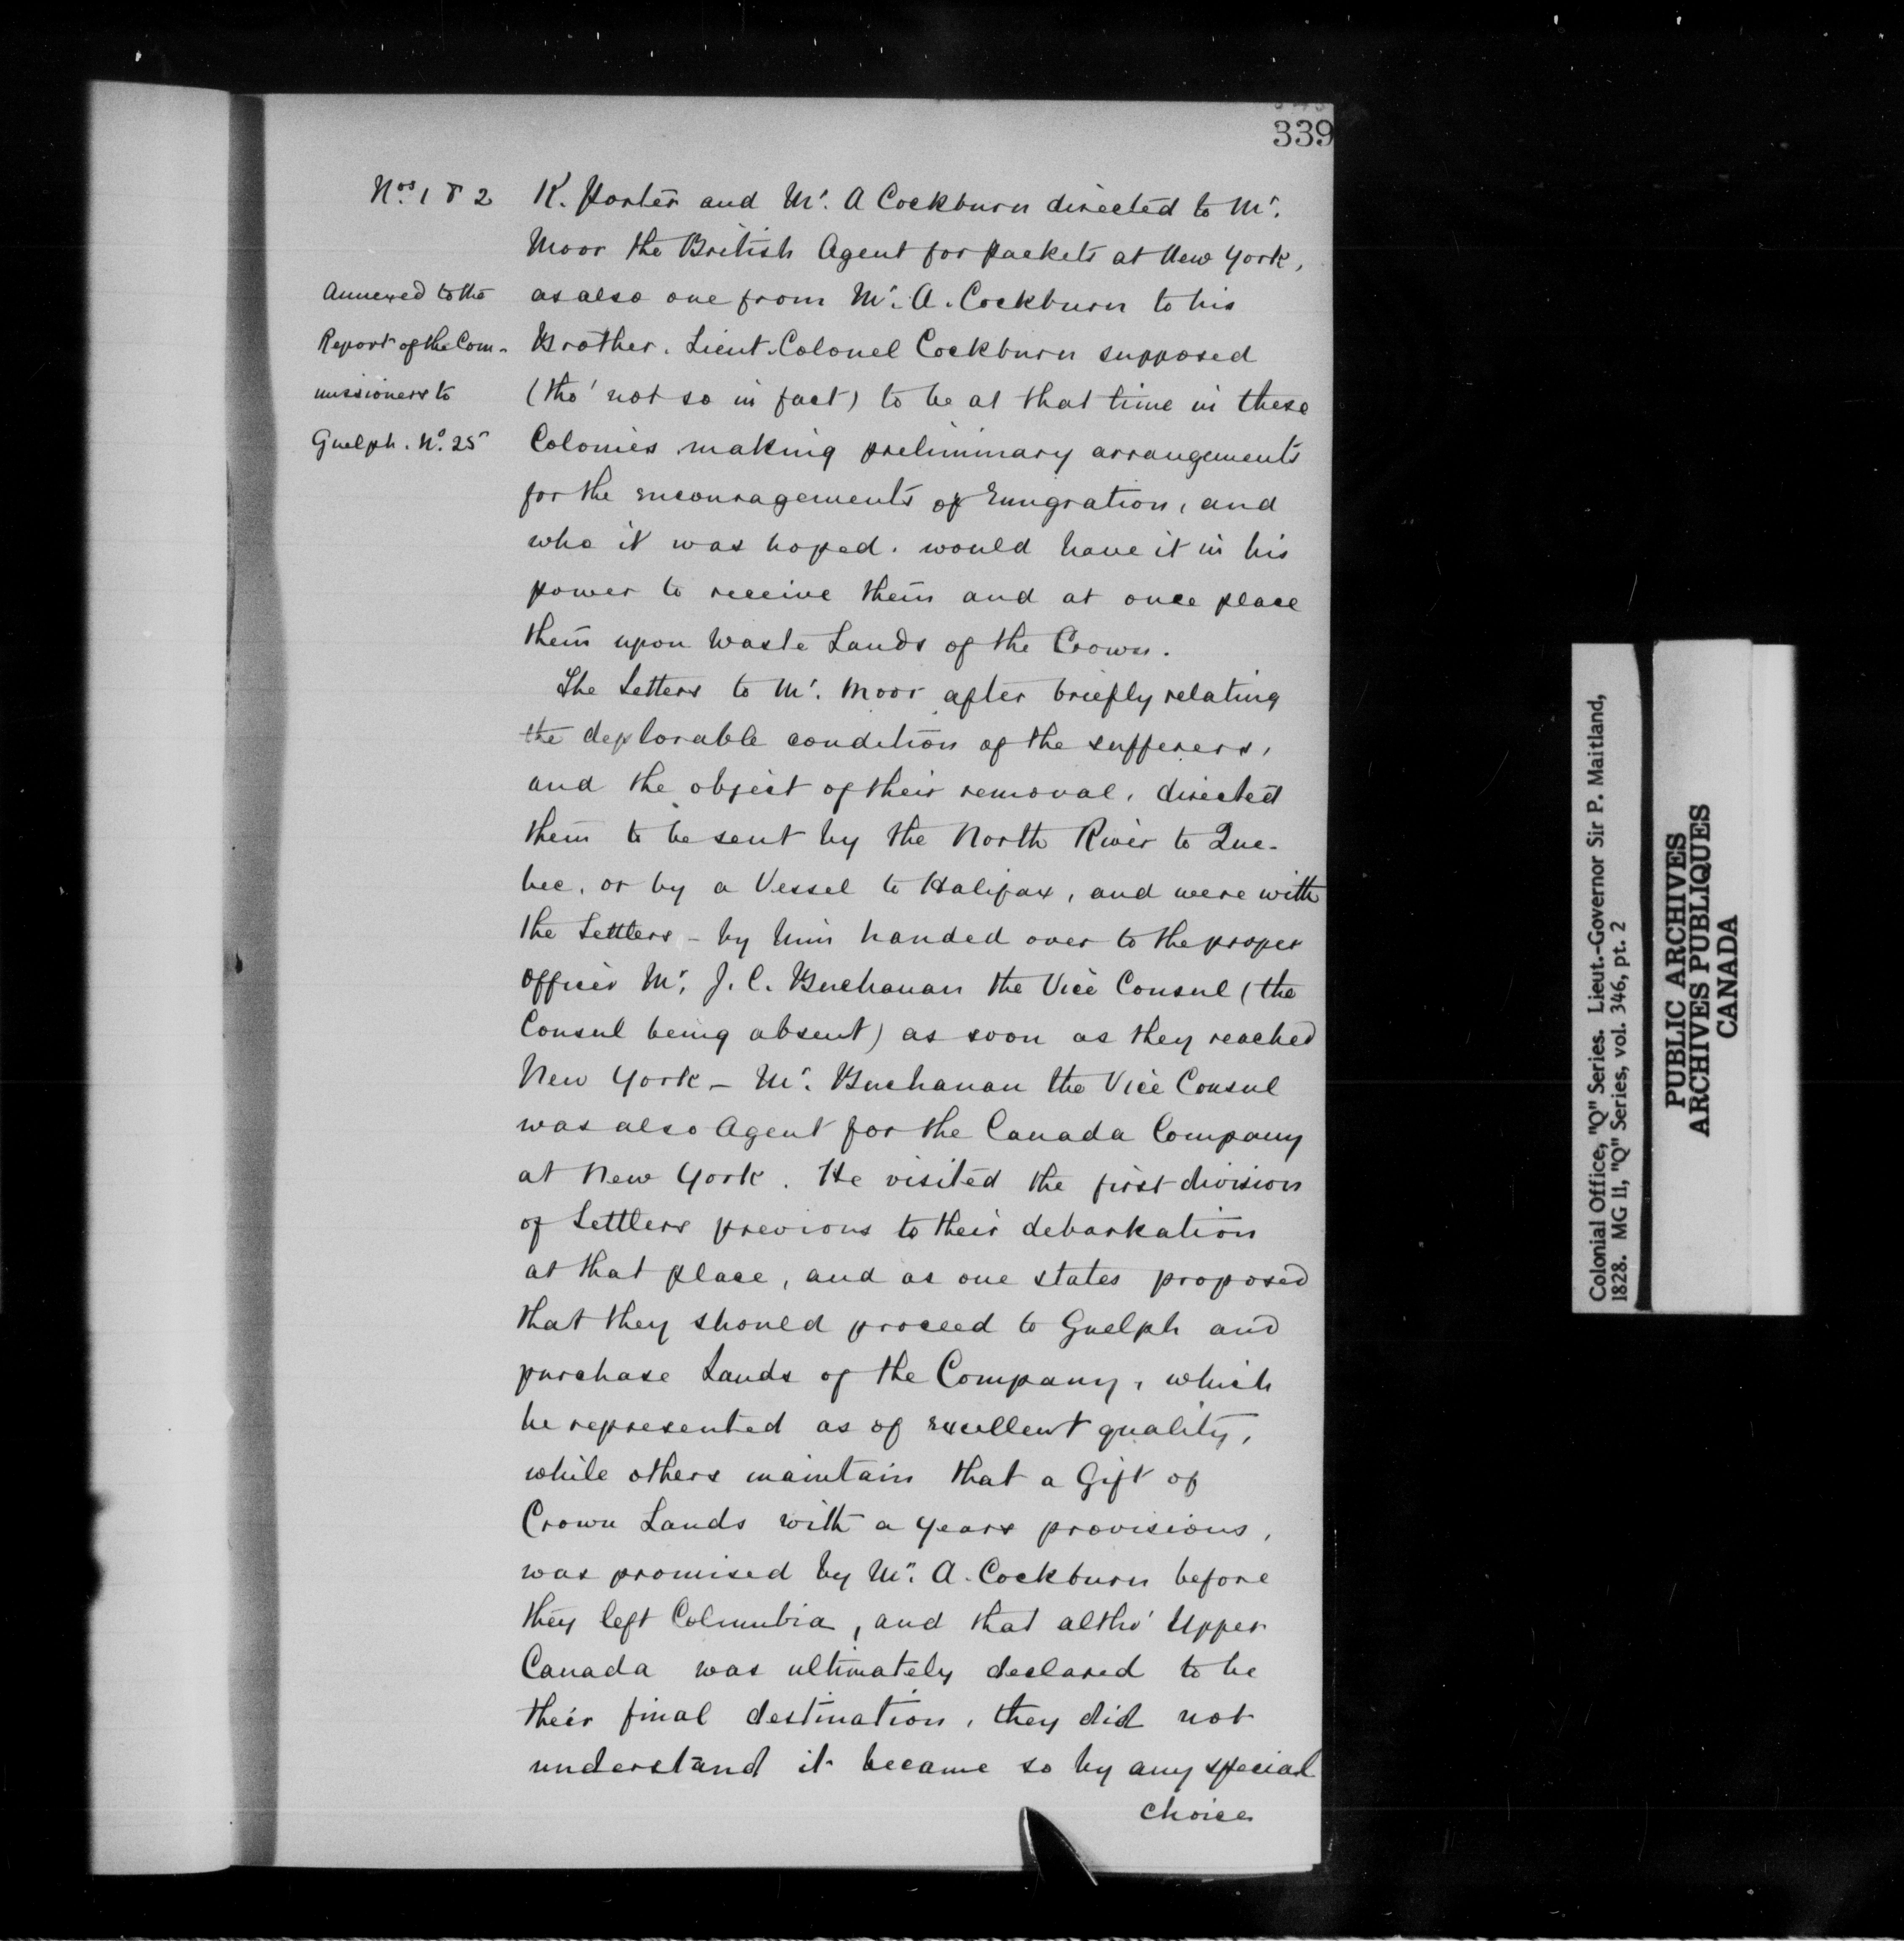 339
Nos. 1 & 2
Annexed to the
Report of the Com-
missioners to
Guelph. No. 25
K. Porter and Mr. A Cockburn directed to Mr.
Moor the British Agent for Packets at New York,
as also one from Mr. A. Cockburn to his
Brother. Lieut. Colonel Cockburn supposed
(tho' not so in fact) to be at that time in these
Colonies making preliminary arrangements
for the encouragements of Emigration, and
who it was hoped. would have it in his
power to receive them and at once place
them upon Waste Lands of the Crown.
The Letters to Mr. Moor after briefly relating
the deplorable condition of the sufferers,
and the object of their removal, directed
them to be sent by the North River to Que-
bec, or by a Vessel to Halifax, and were with
the Settlers - by him handed over to the proper
Officer Mr. J. C. Buchanan the Vice Consul (the
Consul being absent) as soon as they reached
New York - Mr. Buchanan the Vice Consul
was also Agent for the Canada Company
at New York. He visited the first division
of Settlers previous to their debarkation
at that place, and as one states proposed
that they should proceed to Guelph and
purchase Lands of the Company, which
he represented as of excellent quality,
while others maintain that a Gift of
Crown Lands with a years provisions,
was promised by Mr. A. Cockburn before
they left Columbia, and that altho' Upper
Canada was ultimately declared to be
their final destination, they did not
understand it became so by any special
choice
Colonial Office, "Q" Series. Lieut.-Governor Sir P. Maitland,
1828. MG 11, "Q" Series, vol. 346, pt. 2
PUBLIC ARCHIVES
ARCHIVES PUBLIQUES
CANADA